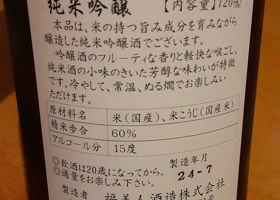 純米吟醸 【内容量】720ml
本品は、米の持つ旨み成分を育みながら
醸造した純米吟醸酒でございます。
吟醸酒のフルーティな香りと軽快な喉ごし、
純米酒の小味のきいた芳醇な味わいが特徴
です。冷やして、常温、ぬる燗でお楽しみい
ただけます。
原材料名 米(国産)、米こうじ(国産米)
精米歩合 60%
アルコール分 15度
◎飲酒は20歳になってから。
◎適量をお楽しみ下さい。
製造年月
24-7
製造者 福美人酒造株式会社